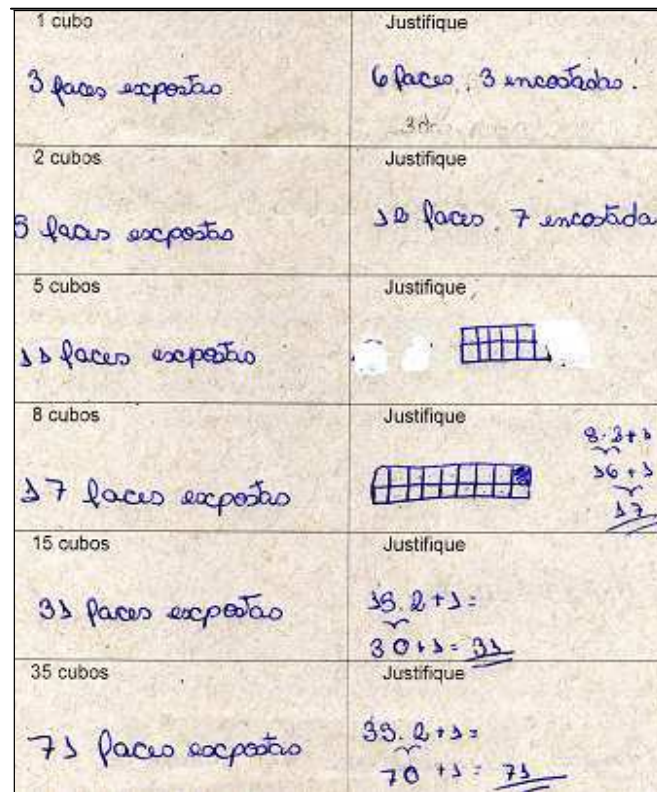 1 cubo
Justifique
3 faces expostas
6 faces, 3 encostadas.
2 cubos
Justifique
5 faces expostas
12 faces. 7 encostada
5 cubos
Justifique
11 faces expostas
8 cubos
Justifique
17 faces expostas
8.2+1
16+1
17
15 cubos
Justifique
31 faces expostas
15.2+1=
30+1=31
35 cubos
Justifique
71 faces expostas
35.2+1=
70+1=71